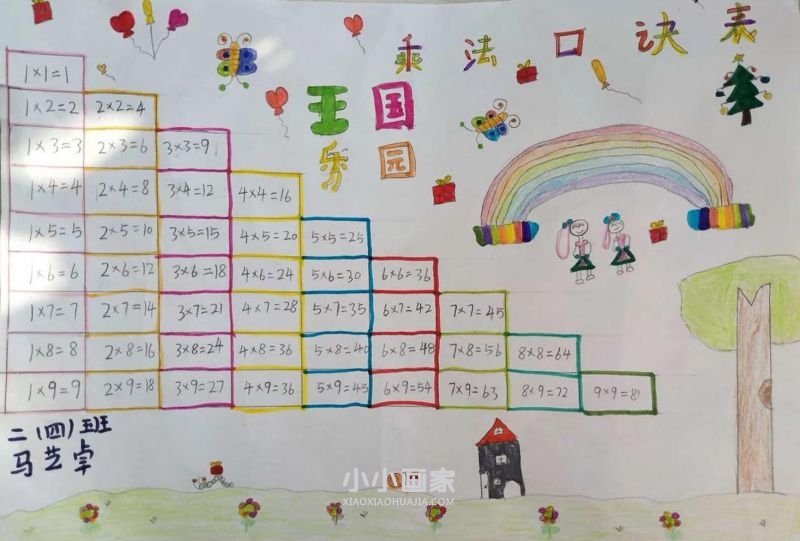 乘法口诀表
王国
乐园
1×1=1
1×2=2 2×2=4
1×3=3 2×3=6 3×3=9
1×4=4 2×4=8 3×4=12 4×4=16
1×5=5 2×5=10 3×5=15 4×5=20 5×5=25
1×6=6 2×6=12 3×6=18 4×6=24 5×6=30 6×6=36
1×7=7 2×7=14 3×7=21 4×7=28 5×7=35 6×7=42 7×7=45
1×8=8 2×8=16 3×8=24 4×8=36 5×8=40 6×8=48 7×8=56 8×8=64
1×9=9 2×9=18 3×9=27 4×9=36 5×9=45 6×9=54 7×9=63 8×9=72 9×9=81
二(四)班
马艺卓
小小画家
XIAOXIAOHUAJIA.COM